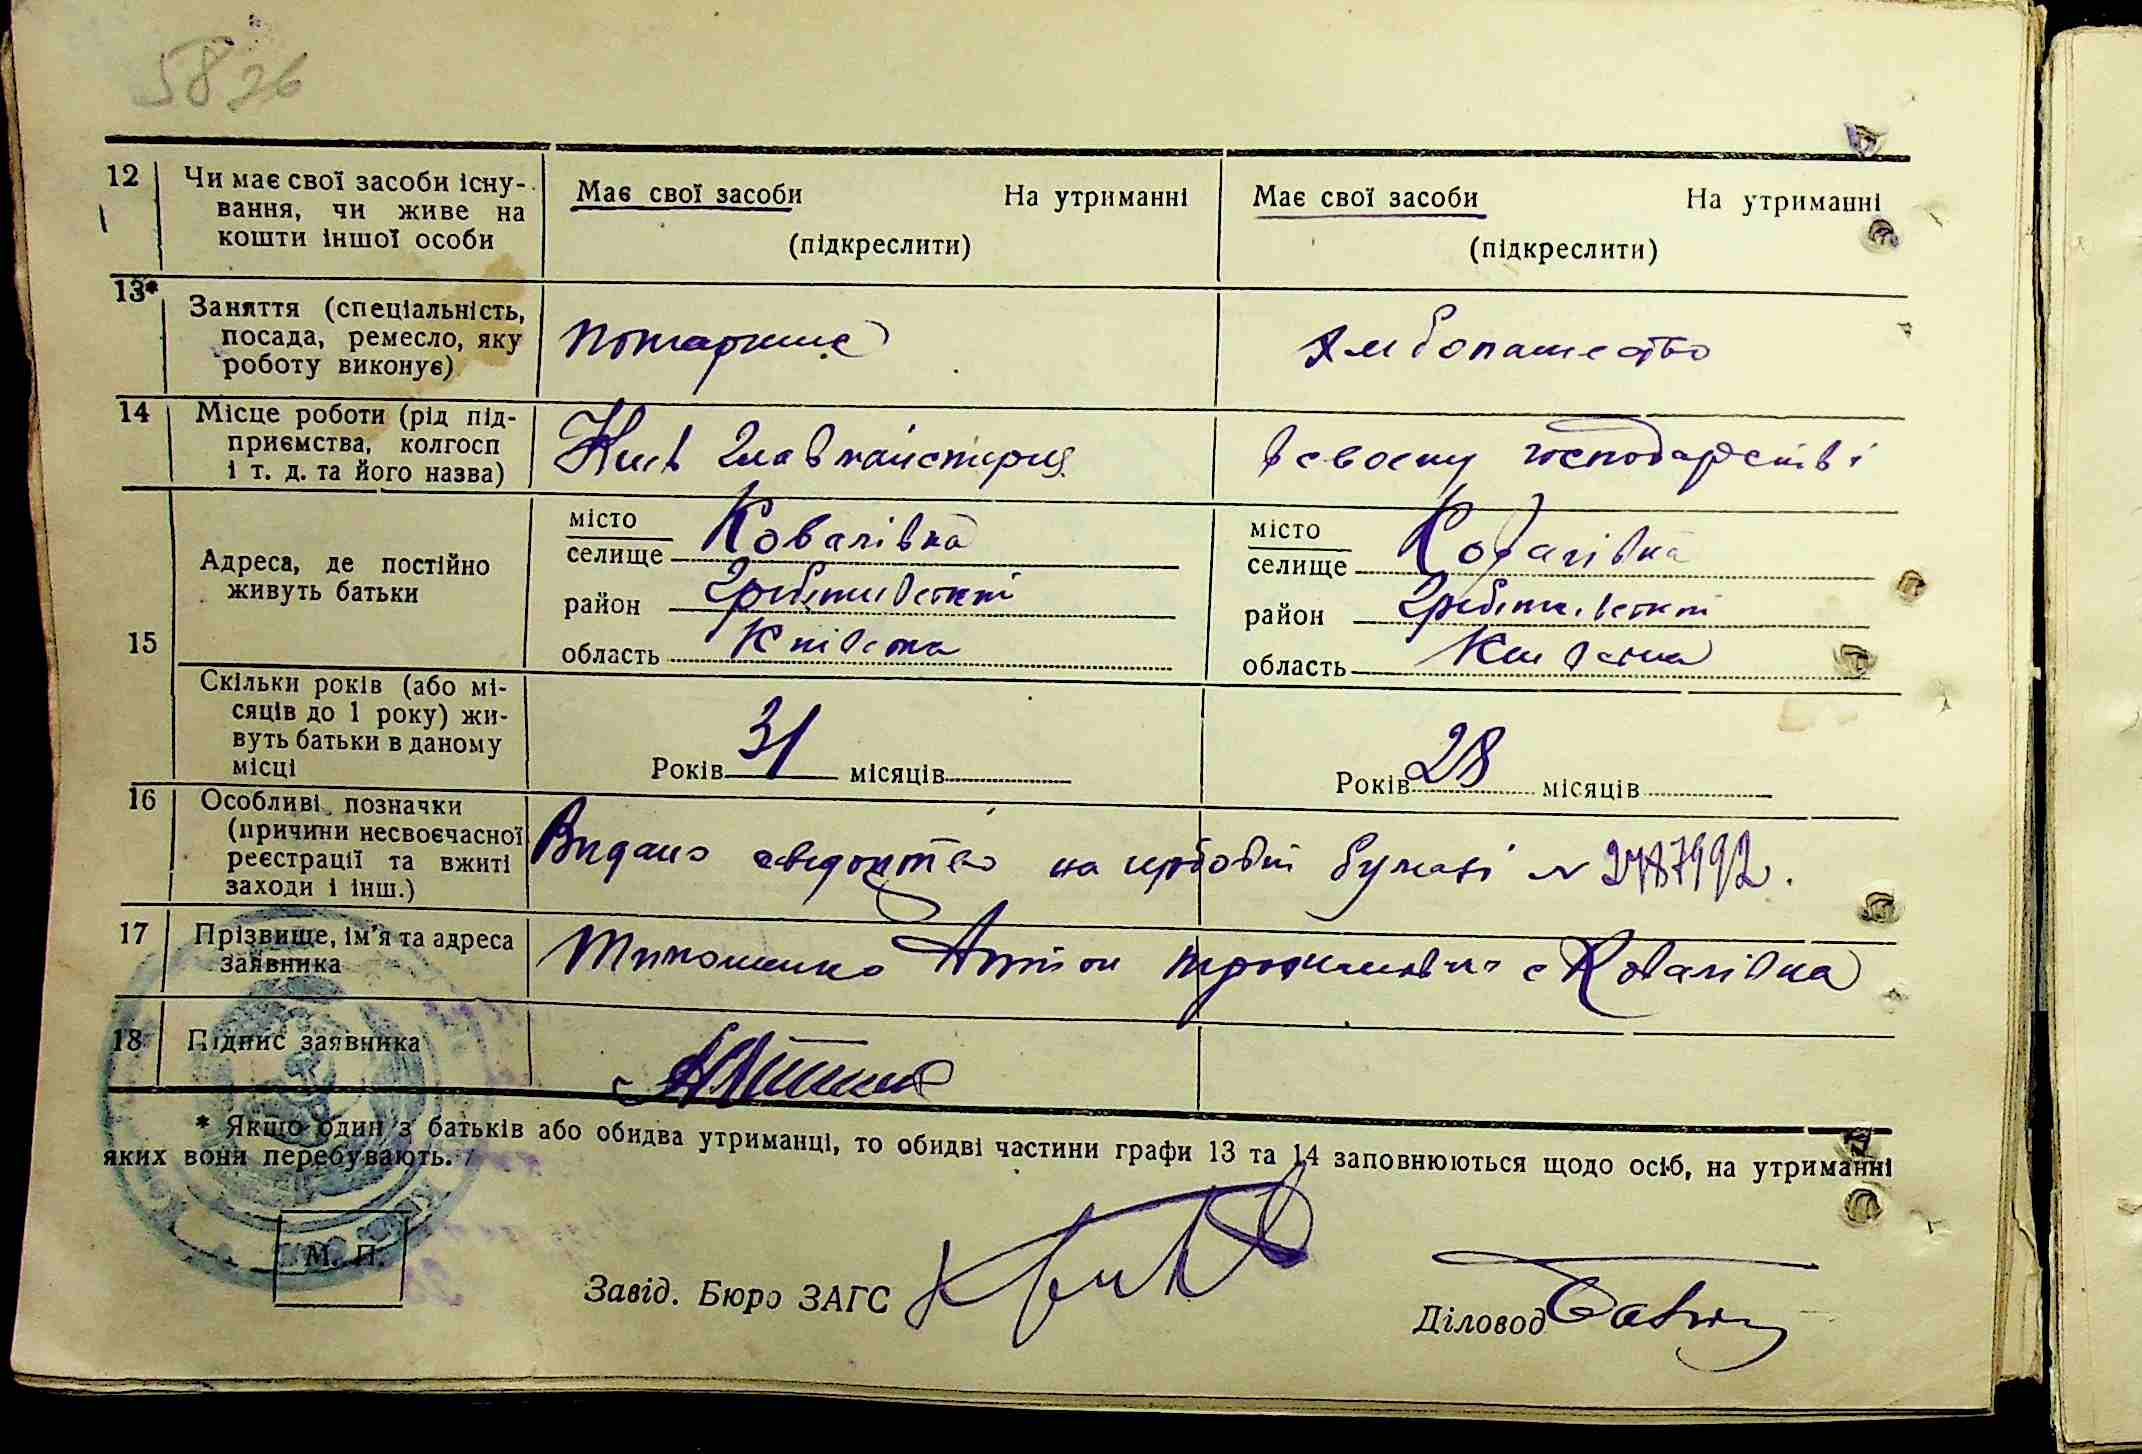 5826
12 Чи має свої засоби існу-
вання, чи живе на
кошти іншої особи
Має свої засоби На утриманні
(підкреслити)
Має свої засоби На утриманні
(підкреслити)
13* Заняття (спеціальність,
посада, ремесло, яку
роботу виконує)
Пожарник
Хлібопашество
14 Місце роботи (рід під-
приємства, колгосп
і т. д. та його назва)
Київ
В своєму господарстві
15 Адреса, де постійно
живуть батьки
місто
селище Ковалівка
район
область Київська
місто
селище Ковалівка
район
область Київська
Скільки років (або мі-
сяців до 1 року) жи-
вуть батьки в даному
місці
Років 31 місяців
Років 28 місяців
16 Особливі позначки
(причини несвоєчасної
реєстрації та вжиті
заходи і інш.)
Видано свідоцтво на гербовій бумазі № 2787992.
17 Прізвище, ім'я та адреса
заявника
Тимошенко Антон с Ковалівка
18 Підпис заявника
* Якщо один з батьків або обидва утриманці, то обидві частини графи 13 та 14 заповнюються щодо осіб, на утриманні
яких вони перебувають.
М. П.
Завід. Бюро ЗАГС
Діловод